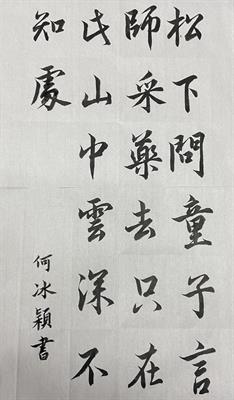 松下問童子言
師采藥去只在
此山中雲深不
知處
何冰穎書